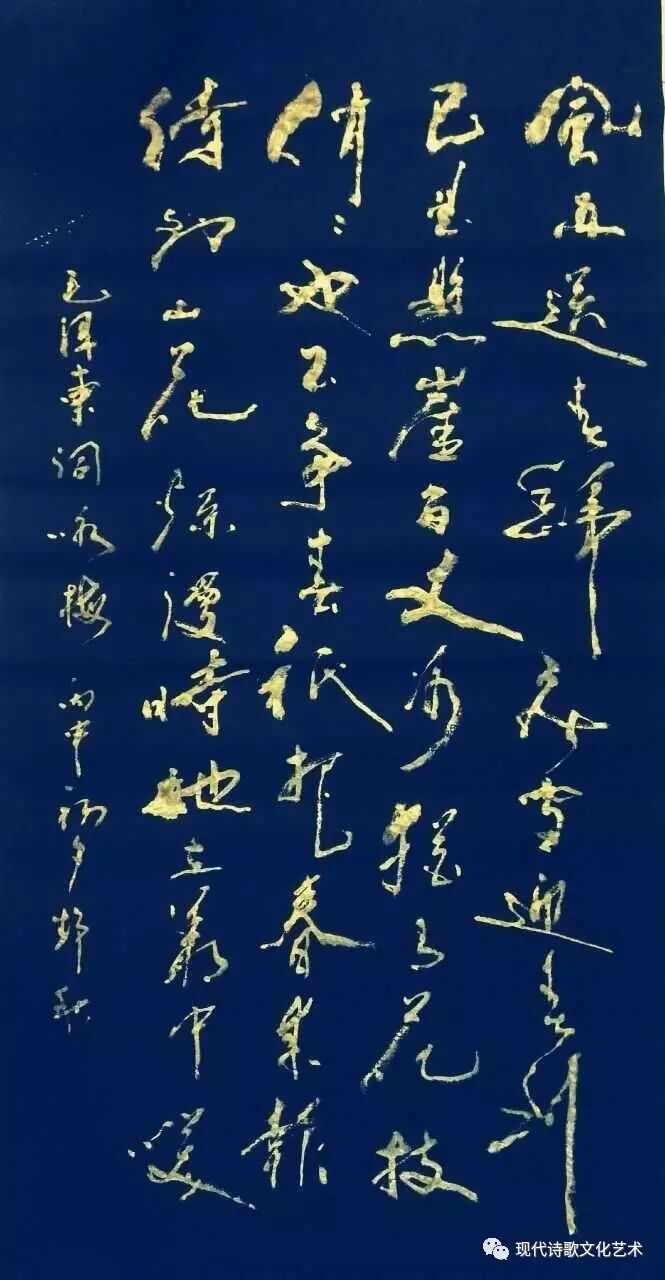 風雨送春歸飛雪迎春到
已是懸崖百丈冰猶有花枝
俏〻也不爭春祇把春來報
待到山花爛漫時她在叢中笑
毛澤東詞咏梅 丙申
现代诗歌文化艺术